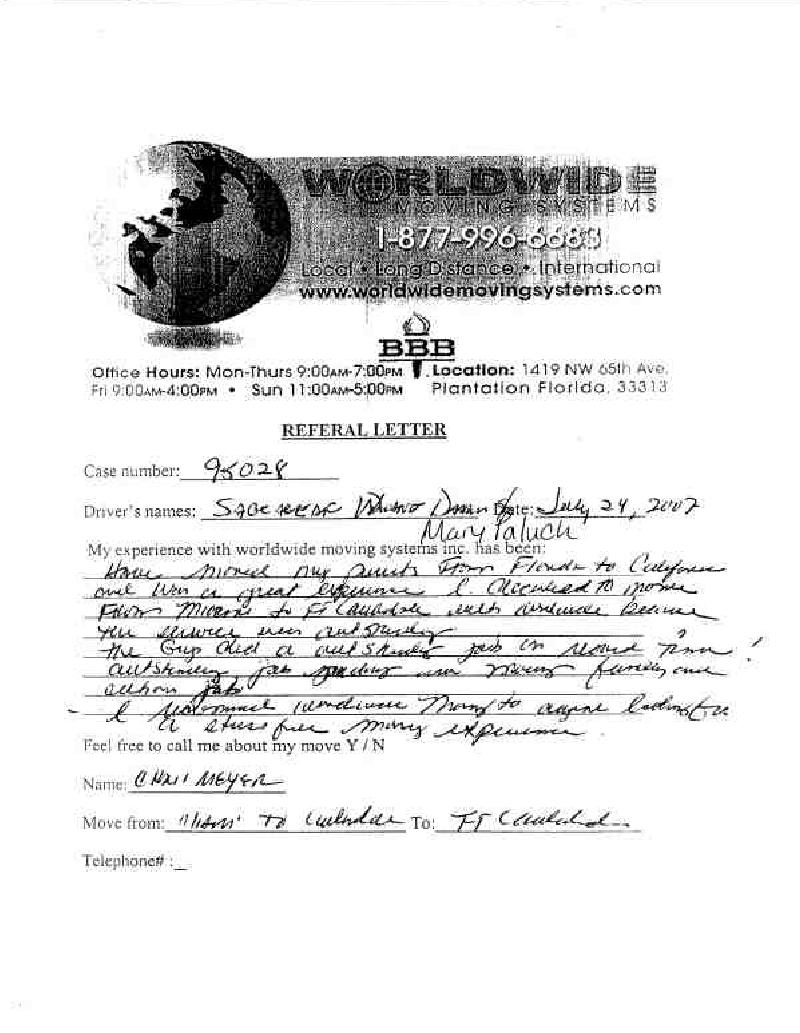 WORLDWIDE
MOVING SYSTEMS
1-877-996-6683
Local • Long Distance • International
www.worldwidemovingsystems.com
BBB
Office Hours: Mon-Thurs 9:00AM-7:00PM
Fri 9:00AM-4:00PM • Sun 11:00AM-5:00PM
Location: 1419 NW 65th Ave.
Plantation Florida, 33313
REFERAL LETTER
Case number: 95028
Driver's names: Date: July 24, 2007
Mary Paluch
My experience with worldwide moving systems inc. has been:
Have moved my parents From Florida to California
and was a great experience I to move
From Miami to Ft Lauderdale with worldwide Because
the service was outstanding
The Guys did a outstanding job in
outstanding job our
job
I recommend worldwide Moving to anyone looking for
a stress free moving experience.
Feel free to call me about my move Y / N
Name: CHRIS MEYER
Move from: Miami To Lauderdale To: FT Lauderdale
Telephone# :